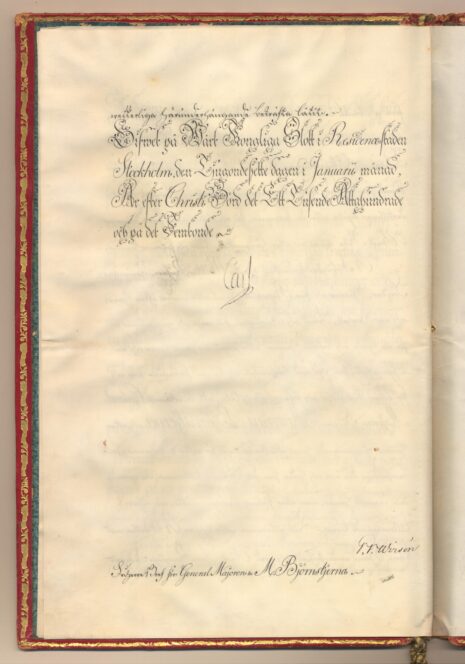 nederliga härunderhängande bekräfta låtit.
Gifwet på Wårt Kongliga Slott i Residencestaden
Stockholm, den Tjugondesjette dagen i Januarii månad,
År efter Christi Börd det Ett Tusende Åttahundrade
och på det Femtonde
Carl
Sebref för General Majoren M. Björnstjerna